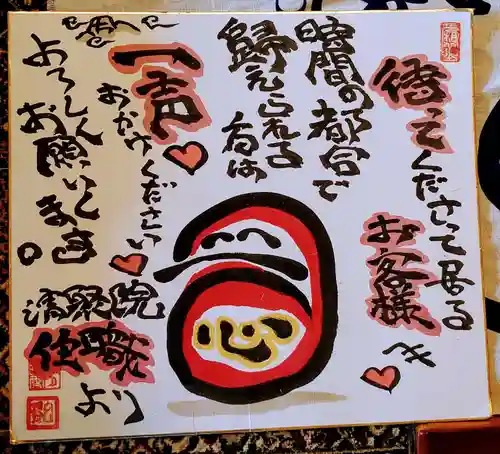 待ってくださって居る
お客様へ
時間の都合で
帰えられる方は
一声
おかけくださいっ
よろしくお願いしまき。
清聚院
住職より